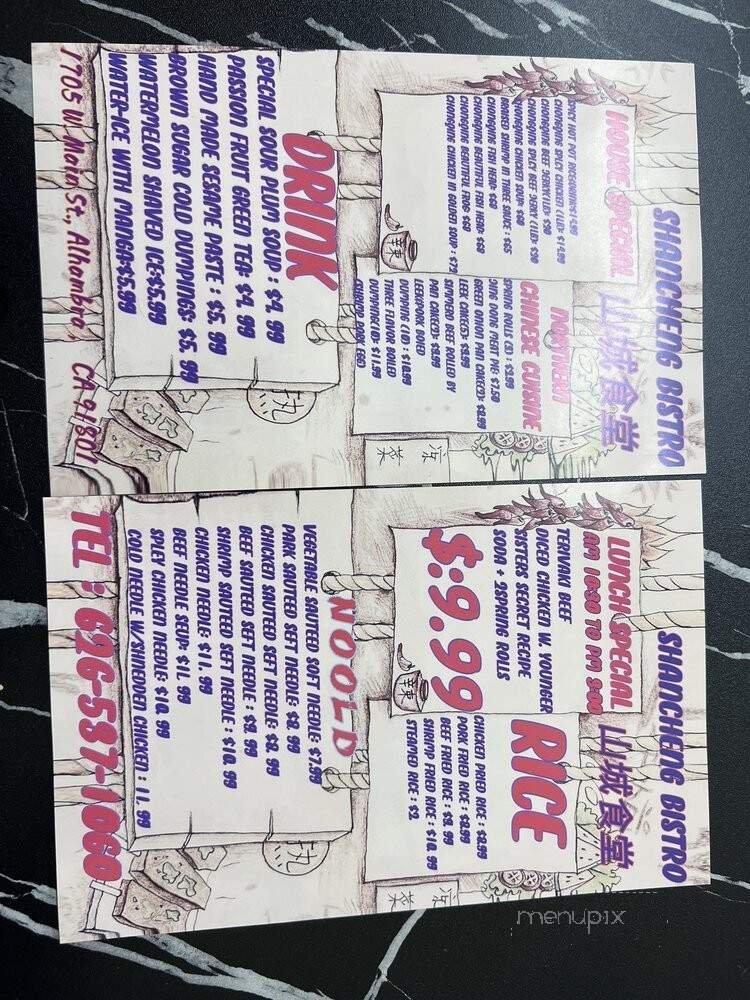 SHANCHENG BISTRO
山城食堂
HOUSE SPECIAL
CHONGQING SPICY CHICKEN (1LE): $1.99
CHONGQING BEEF JERKY(1LE): $30
CHONGQING SPICY BEEF JERKY (1LE): $30
CHONGQING CHICKEN SOUP: $60
SHRIMP IN THREE SAUCE : $65
CHONGQING FISH HEAD: $60
CHONGQING BEAUTIFUL FISH HEAD: $60
CHONGQING BEAUTIFUL FROG: $60
CHONGQING CHICKEN IN GOLDEN SOUP : $72
辣
NORTHERN
CHINESE CUISINE
SPRING ROLLS (3) : $3.99
DING DONG MEAT PIE: $7.50
GREEN ONION PAN CAKE(2): $8.99
LEEK CAKE(2): $9.99
SIMMERD BEEF ROLLED BY
PAN CAKE(2): $9.99
LEEK&PORK BOILED
DUMPING (10) : $10.99
THREE FLAVOR BOILED
DUMPPING(10): $11.99
(SHRIMP PORK EGG)
DRINK
SPECIAL SOUR PLUM SOUP : $4. 99
PASSION FRUIT GREEN TEA: $4. 99
HAND MADE SESAME PASTE : $5. 99
BROWN SUGAR COLD DUMPINGS: $5. 99
WATERMELON SHAVED ICE:$5.99
WATER-ICE WITH MANGA:$5.99
凉菜
1705 W. Main St., Alhambra , CA 91801
SHANCHENG BISTRO
山城食堂
LUNCH SPECIAL
AM 10:30 TO PM 3:00
TERIYAKI BEEF
DICED CHICKEN W. YOUNGER
SISTERS SECRET RECIPE
SODA + 2SPRING ROLLS
$:9.99
辣
RICE
CHICKEN FRIED RICE : $8.99
PORK FRIED RICE : $8.99
BEEF FRIED RICE : $9. 99
SHRIMP FRIED RICE : $10. 99
STEAMED RICE : $2.
凉菜
NOOLD
VEGETABLE SAUTEED SOFT NEEDLE: $7.99
PARK SAUTEED SEFT NEEDLE: $8. 99
CHICKEN SAUTEED SEFT NEEDLE: $8. 99
BEEF SAUTEED SEFT NEEDLE : $9. 99
SHRIMP SAUTEED SEFT NEEDLE : $10. 99
CHICKEN NEEDLE: $11. 99
BEEF NEEDLE SEUP: $11. 99
SPLEY CHICKEN NEEDLE: $10. 99
COLD NEEDLE W/SHREDDED CHICKEN : 11. 99
TEL : 626-587-1060
menupix